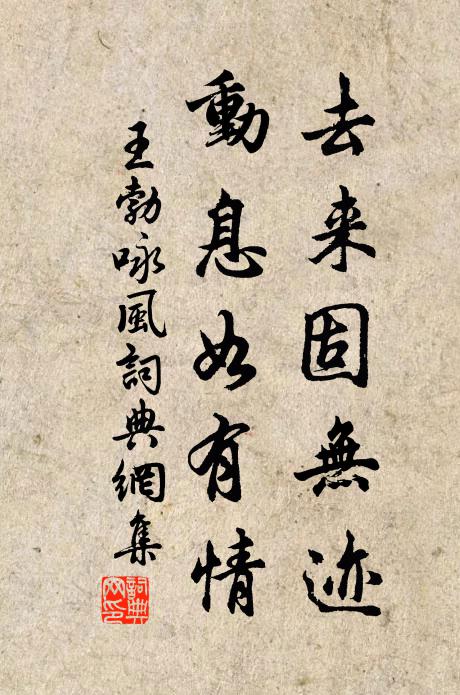 去来固無迹
動息如有情
王勃咏風詞典網集
詞典
网印